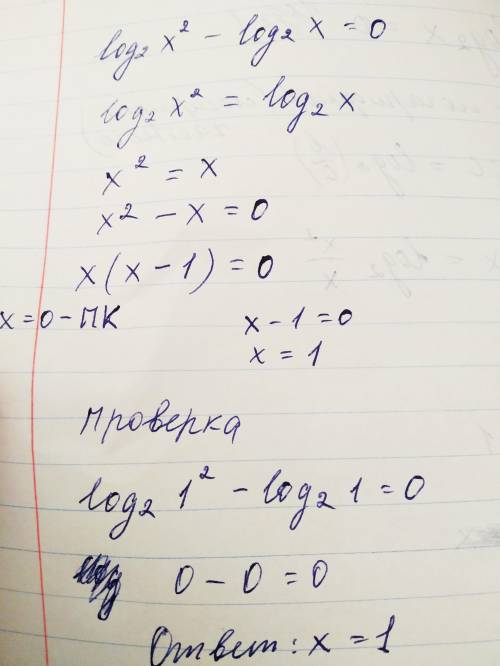 log₂ x² - log₂ x = 0
log₂ x² = log₂ x
x² = x
x² - x = 0
x(x - 1) = 0
x = 0 - ПК x - 1 = 0
x = 1
Проверка
log₂ 1² - log₂ 1 = 0
0 - 0 = 0
Ответ: x = 1